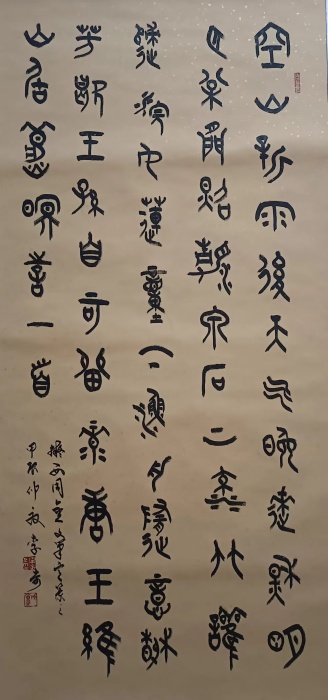 空山新雨後天气晚來秋明
月松間照清泉石上流竹喧
歸浣女蓮動下漁舟隨意春
芳歇王孫自可留录唐王維
山居秋暝詩一首
西周金文
甲辰仲秋